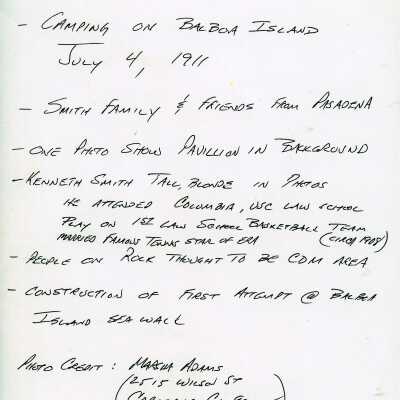 - CAMPING ON BALBOA ISLAND
JULY 4, 1911
- SMITH FAMILY & FRIENDS FROM PASADENA
- ONE PHOTO SHOW PAVILLION IN BACKGROUND
- KENNETH SMITH TALL, BLONDE IN PHOTOS
HE ATTENDED COLUMBIA, USC LAW SCHOOL
PLAY ON 1ST LAW SCHOOL BASKETBALL TEAM
MARRIED FAMOUS TENNIS STAR OF ERA (CIRCA
- PEOPLE ON ROCK THOUGHT TO BE CDM AREA
- CONSTRUCTION OF FIRST ATTEMPT @ BALBOA
ISLAND SEA WALL
PHOTO CREDIT: MARSHA ADAMS
(2515 WILSON ST